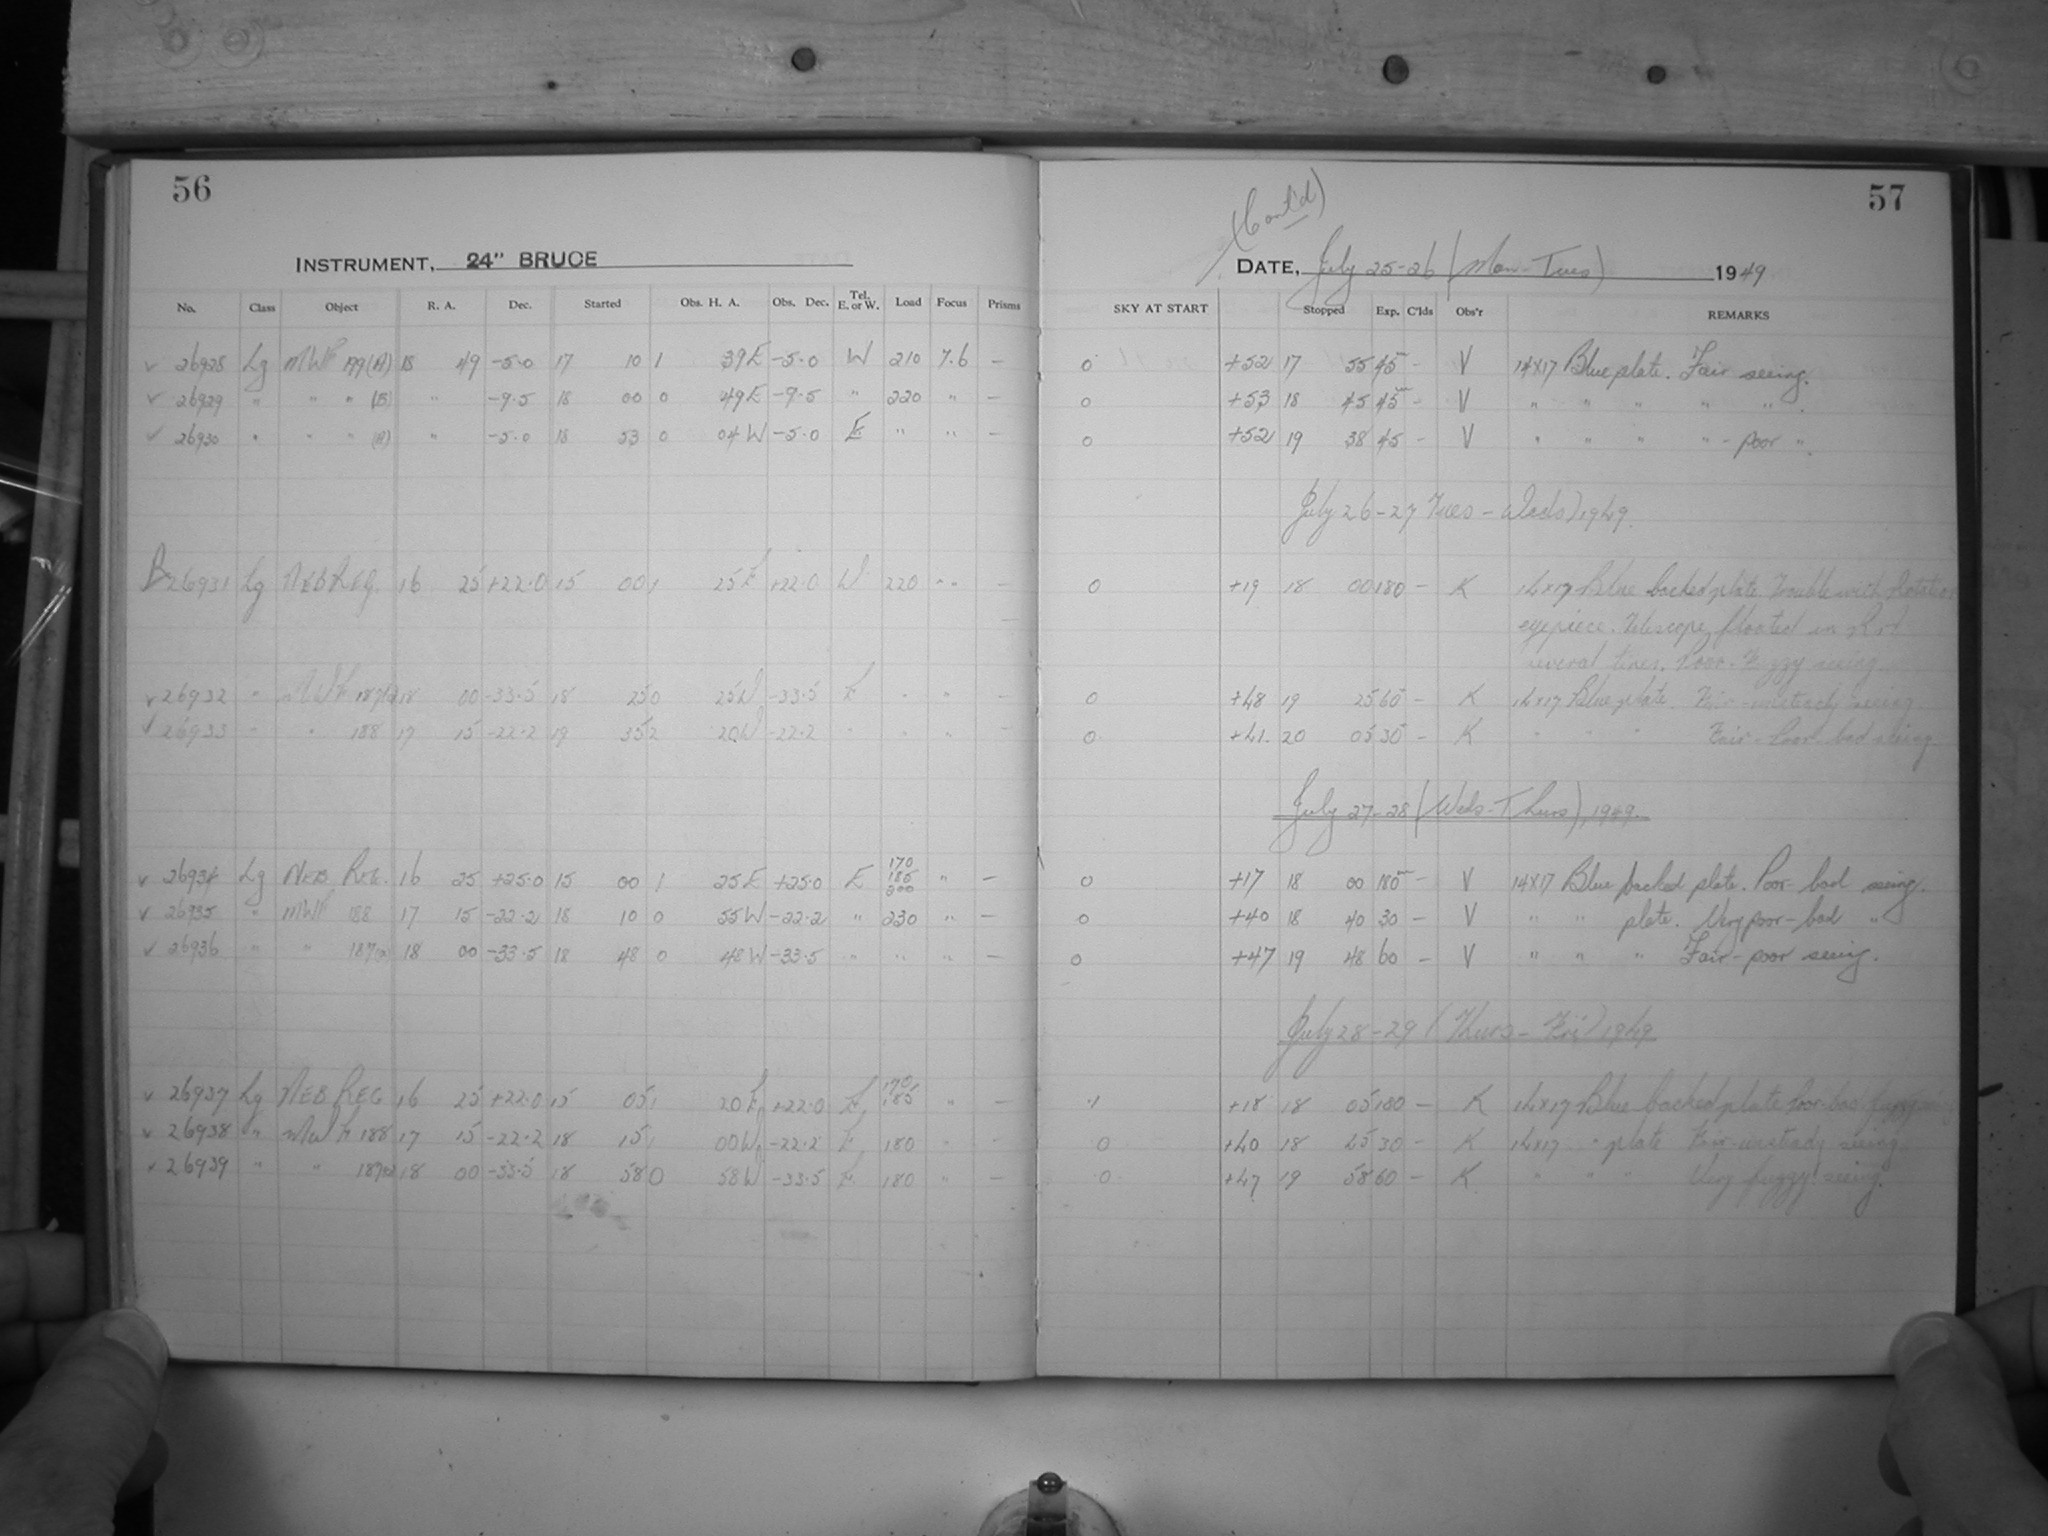 56
INSTRUMENT, 24" BRUCE
No. Class Object R. A. Dec. Started Obs. H. A. Obs. Dec. Tel. E. or W. Load Focus Prisms
26928 Lg MWF 199 (A) 18 49 -5.0 17 10 1 39E -5.0 W 210 7.6 —
26929 " " " (B) " -9.5 18 00 0 49E -9.5 " 220 " —
26930 " " " (A) " -5.0 18 53 0 04W -5.0 E " " —
26931 Lg NEB REG. 16 25 +22.0 15 00 1 25E +22.0 W 220 " " —
26932 " MWF 187 18 00 -33.5 18 25 0 25W -33.5 E " " —
26933 " " 188 17 15 -22.2 19 35 2 20W -22.2 " " " —
26934 Lg NEB REG. 16 25 +25.0 15 00 1 25E +25.0 E 170 185 200 " —
26935 " MWF 188 17 15 -22.2 18 10 0 55W -22.2 " 230 " —
26936 " " 187 18 00 -33.5 18 48 0 48W -33.5 " " " —
26937 Lg NEB REG 16 25 +22.0 15 05 1 20E +22.0 E 170 185 " —
26938 " MWF 188 17 15 -22.2 18 15 1 00W -22.2 E 180 " —
26939 " " 187 18 00 -33.5 18 58 0 58W -33.5 E 180 " —
57
(Cont'd)
DATE, July 25-26 (Mon-Tues) 1949
SKY AT START Stopped Exp. C'lds Obs'r REMARKS
0 +52 17 55 45 — V 14x17 Blue plate. Fair seeing.
0 +53 18 45 45 — V " " " " "
0 +52 19 38 45 — V " " " " - poor "
July 26-27 Tues - Weds) 1949.
0 +19 18 00 180 — K 14x17 Blue backed plate. Trouble with Rotation
eyepiece. Telescope floated in RA
several times. Poor-Fuzzy seeing.
0 +48 19 25 60 — K 14x17 Blue plate. Fair-unsteady seeing
0 +41 20 05 30 — K " " " Fair-Poor-bad seeing
July 27-28 (Weds-Thurs), 1949.
0 +17 18 00 180 — V 14x17 Blue backed plate. Poor-bad seeing.
0 +40 18 40 30 — V " " plate. Very poor-bad "
0 +47 19 48 60 — V " " " Fair-poor seeing.
July 28-29 (Thurs-Fri) 1949
1 +18 18 05 180 — K 14x17 Blue backed plate Poor-bad fuzzy
0 +40 18 45 30 — K 14x17 " plate Fair-unsteady seeing
0 +47 19 58 60 — K " " " Very fuzzy seeing.